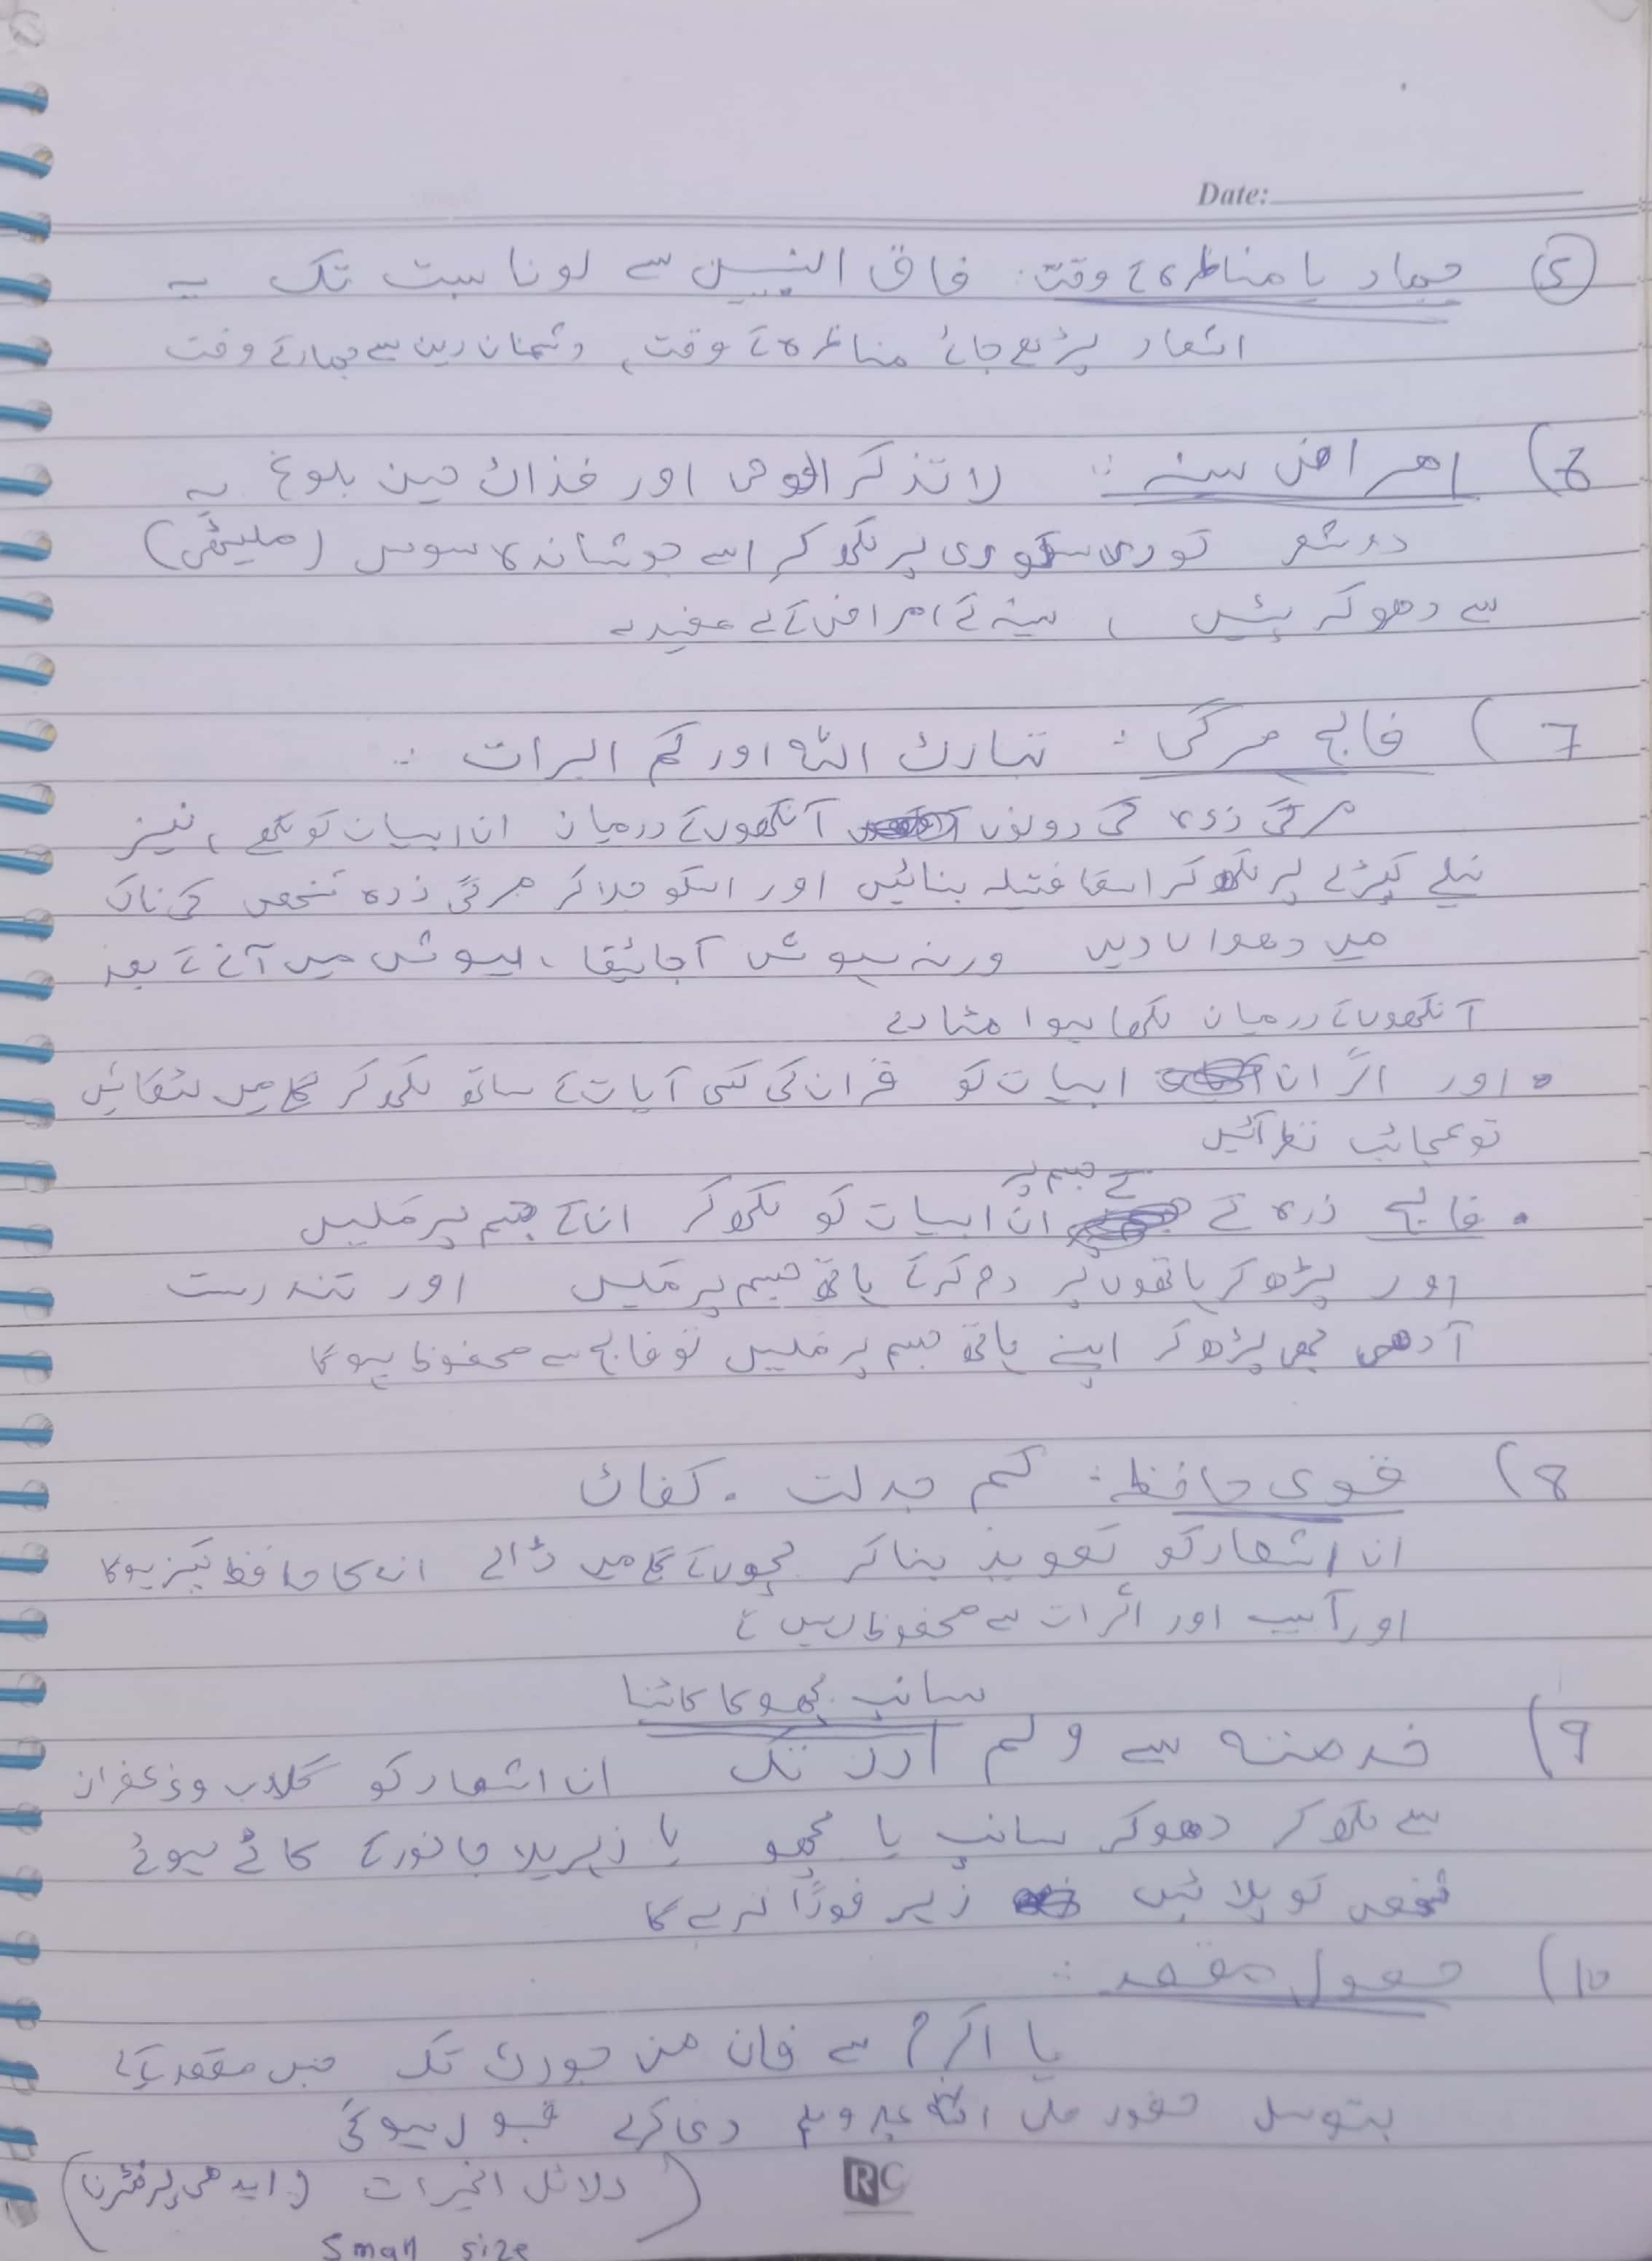 Date:
⑤ جہاد یا مناظرہ کے وقت: فاق النبیین سے لو ناسبت تک یہ
اشعار پڑھے جائے مناظرہ کے وقت، دشمنان دین سے جہاد کے وقت
6) امراض سینہ: لا تنکر الوحی اور فذاک حین بلوغ یہ
دو شعر کوری سکوری پر لکھ کر اسے جوشاندہ سوس (ملیٹھی)
سے دھو کر پئیں، سینہ کے امراض کے لے مفید ہے
7) فالج مرگی: تبارک اللہ اور کم ابرات:
مرگی زدہ کی دونوں آنکھوں کے درمیان ان ابیات کو لکھے، نیز
نیلے کپڑے پر لکھ کر اسکا فتیلہ بنائیں اور اسکو جلا کر مرگی زدہ شخص کی ناک
میں دھواں دیں ورنہ ہوش آجائیگا، ہوش میں آنے کے بعد
آنکھوں کے درمیان لکھا ہوا مٹا دے
• اور اگر ان ابیات کو قرآن کی کسی آیات کے ساتھ لکھ کر گلے میں لٹکائیں
تو عجائب نظر آئیں
• فالج زدہ کے کے جسم پر ان ابیات کو لکھ کر ان کے جسم پر مَلیں
اور پڑھ کر ہاتھوں پر دم کر کے ہاتھ جسم پر مَلیں اور تندرست
آدمی بھی پڑھ کر اپنے ہاتھ جسم پر مَلیں تو فالج سے محفوظ ہوگا
8) قوی حافظہ: کم جدلت . کفاک
ان اشعار کو تعویذ بنا کر بچوں کے گلے میں ڈالے ان کا حافظہ تیز ہوگا
اور آسیب اور اثرات سے محفوظ رہیں گے
سانپ بچھو کا کاٹنا
9) خدمتہ سے ولم ارد تک ان اشعار کو گلاب و زعفران
سے لکھ کر دھو کر سانپ یا بچھو یا زہریلا جانور کے کاٹے ہوئے
شخص کو پلائیں زہر فوراً اترے گا
10) حصول مقصد:
یا اکرم سے فان من جودک تک جس مقصد کیلئے
بتوسل حضور صلی اللہ علیہ وسلم دعا کرے قبول ہوگی
RC
(دلائل الخیرات
Small size